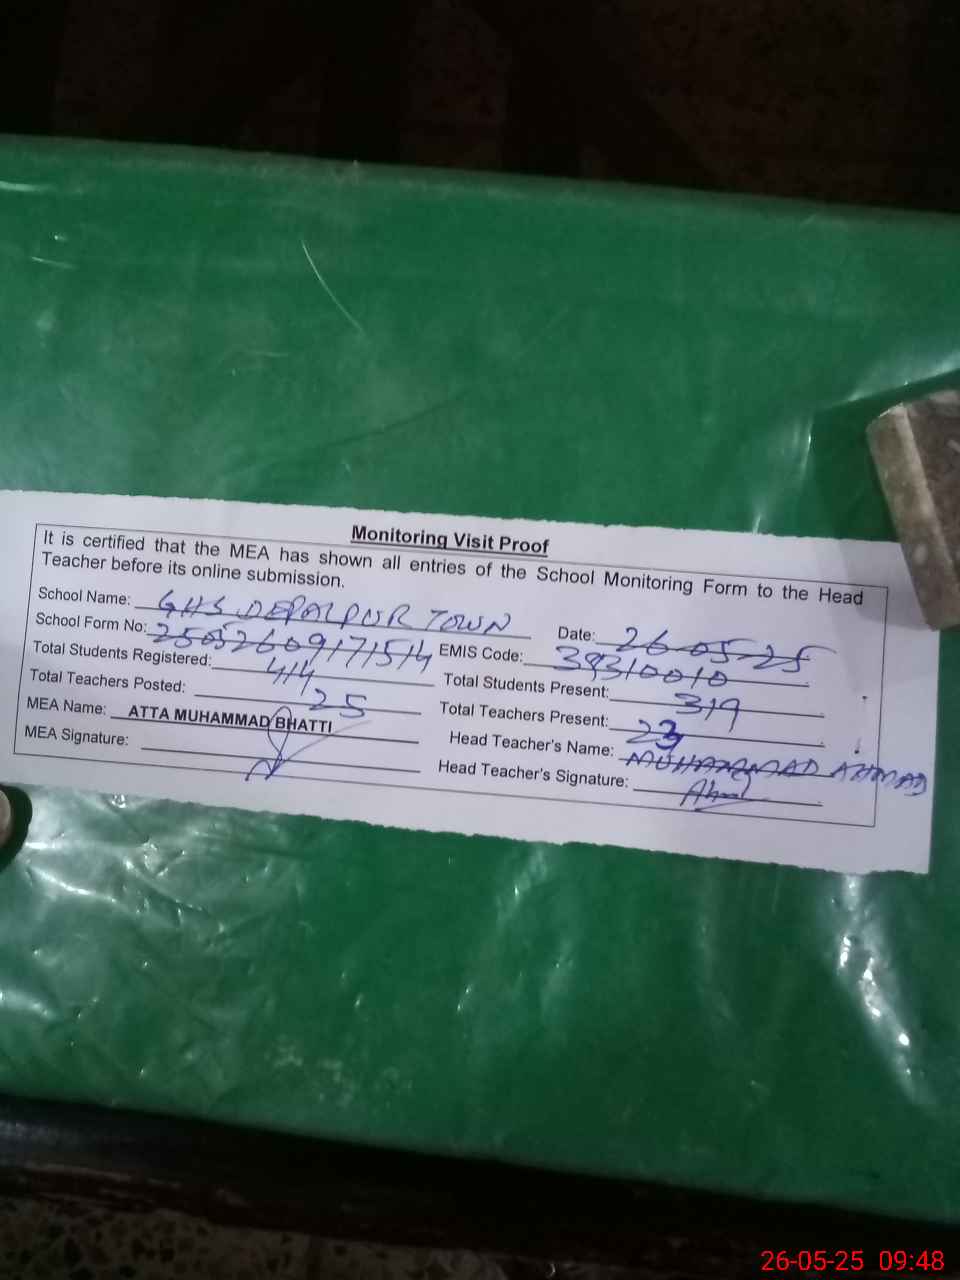 Monitoring Visit Proof
It is certified that the MEA has shown all entries of the School Monitoring Form to the Head
Teacher before its online submission.
School Name: GHS DEPALPUR TOWN Date: 26-05-25
School Form No: 25052609171514 EMIS Code: 39310010
Total Students Registered: 414 Total Students Present: 319
Total Teachers Posted: 25 Total Teachers Present: 23
MEA Name: ATTA MUHAMMAD BHATTI Head Teacher's Name: MUHAMMAD AHMAD
MEA Signature: Head Teacher's Signature: Ahmad
26-05-25 09:48